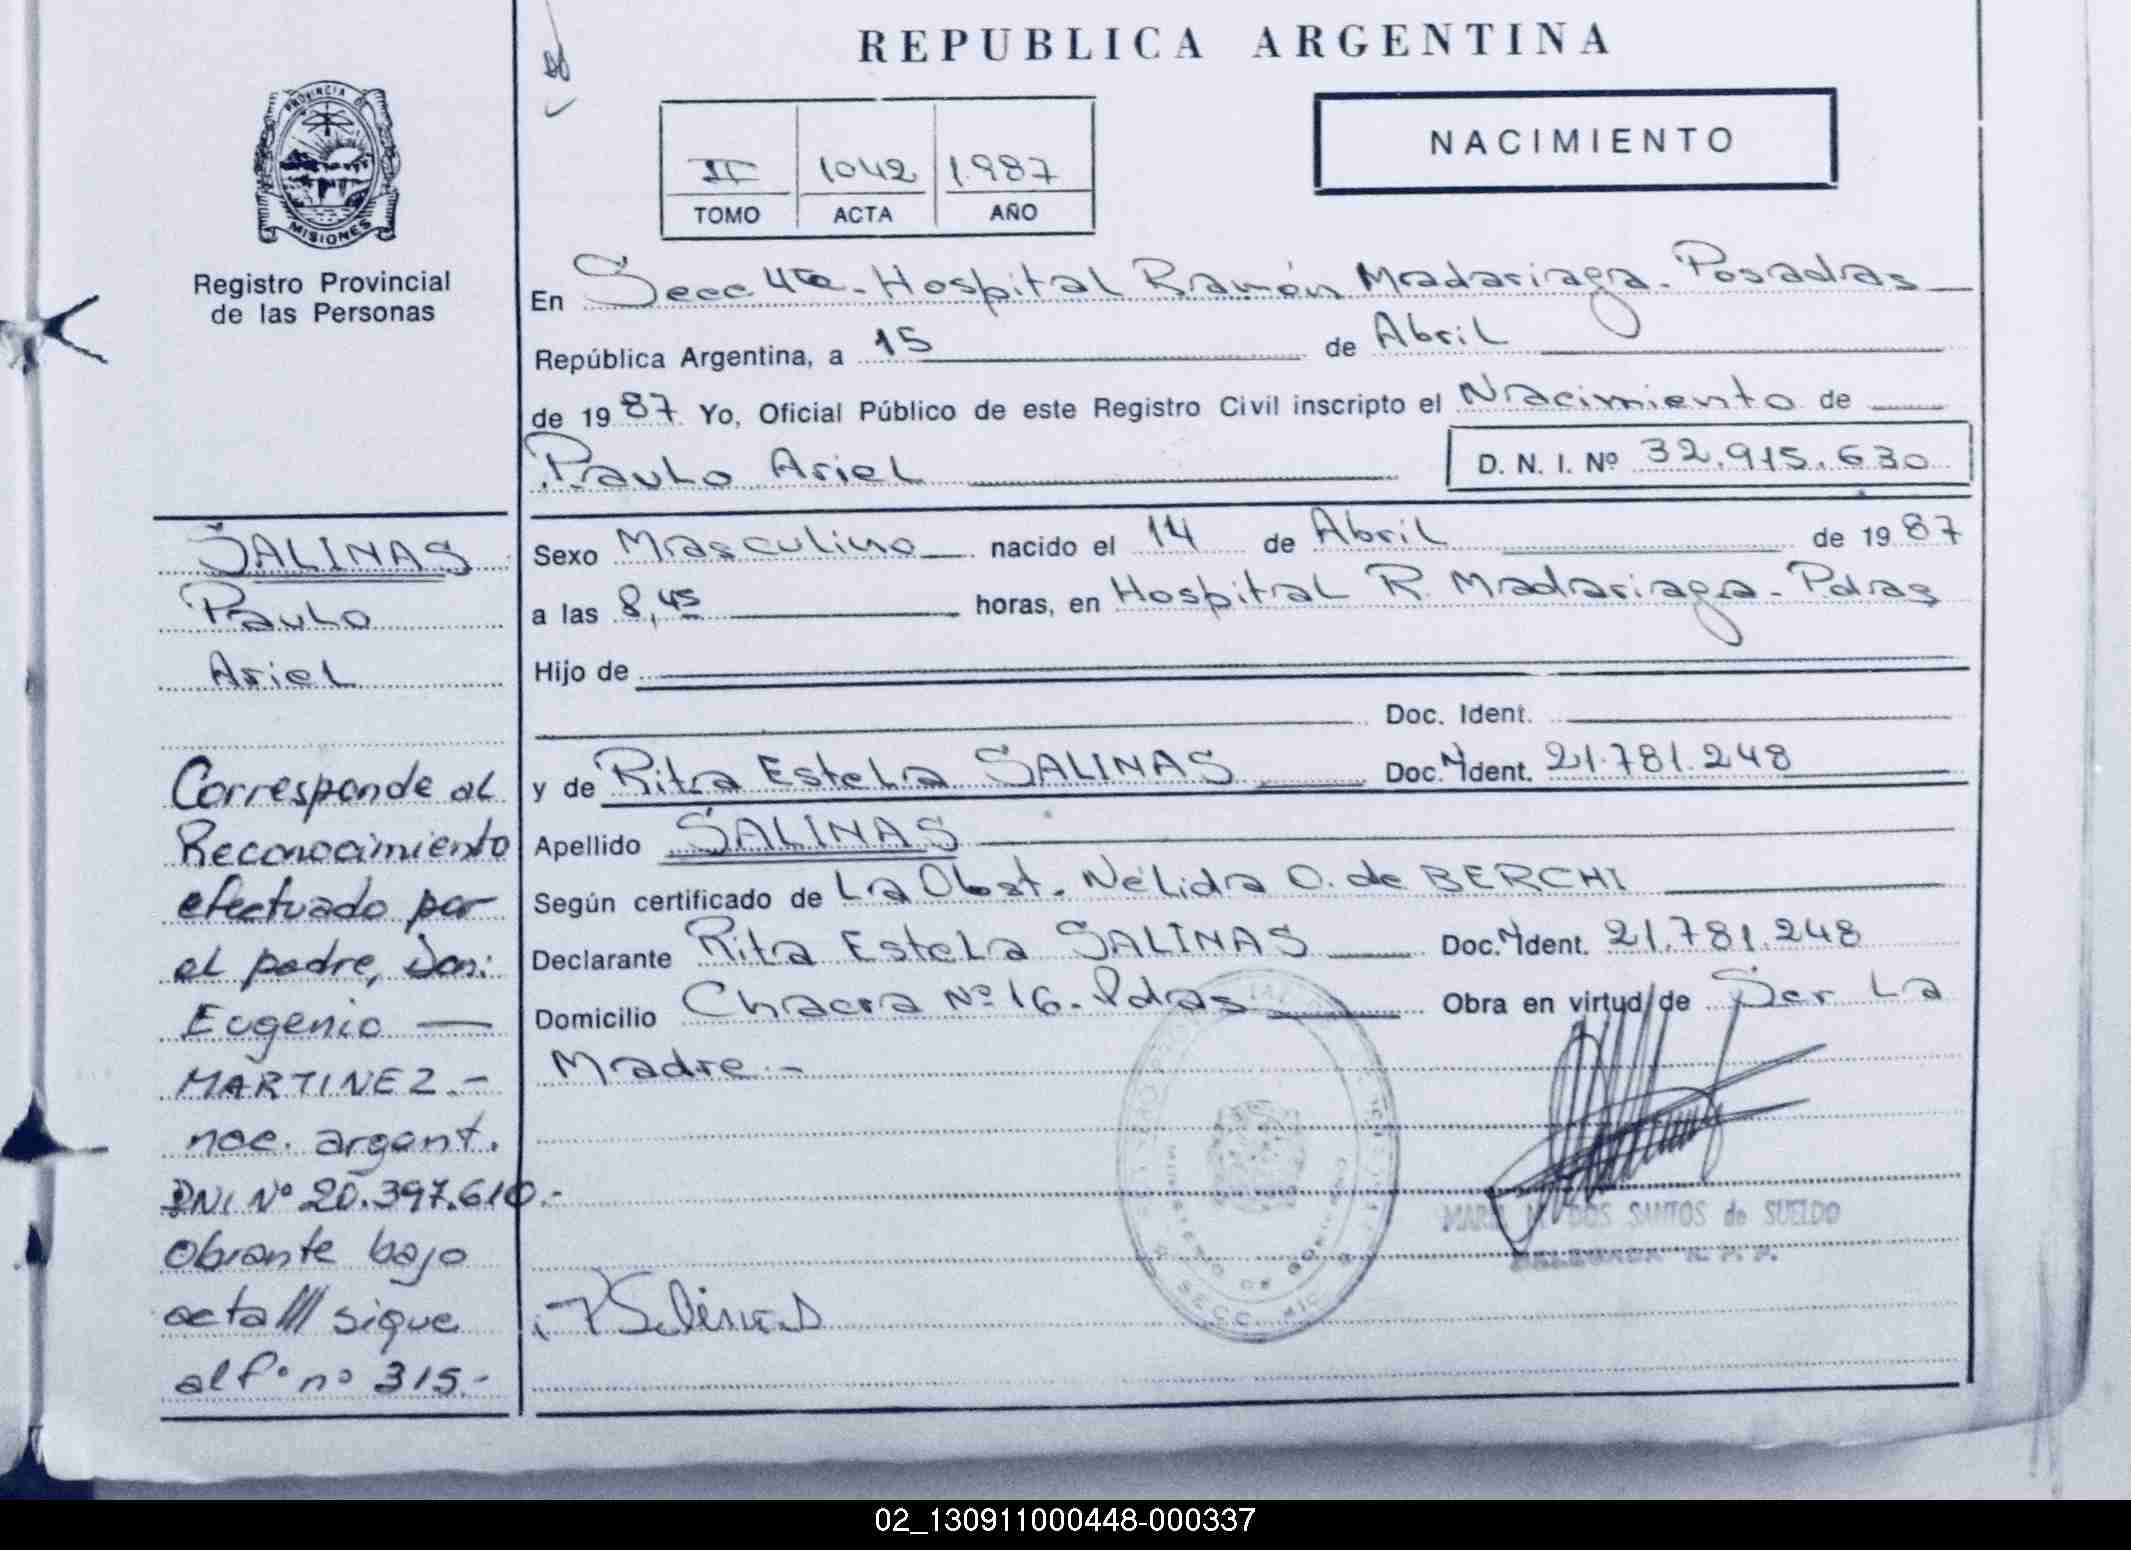 REPUBLICA ARGENTINA
PROVINCIA DE
MISIONES
Registro Provincial
de las Personas
NACIMIENTO
II 1042 1.987
TOMO ACTA AÑO
En Secc 4ta. Hospital Ramón Madariaga. Posadas
República Argentina, a 15 de Abril
de 1987 Yo, Oficial Público de este Registro Civil inscripto el Nacimiento de
Paulo Ariel D. N. I. Nº 32.915.630
Sexo Masculino nacido el 14 de Abril de 1987
a las 8,45 horas, en Hospital R. Madariaga - Pdas
Hijo de
Doc. Ident.
y de Rita Estela SALINAS Doc. N Ident. 21.781.248
Apellido SALINAS
Según certificado de La Obst. Nélida O. de BERCHI
Declarante Rita Estela SALINAS Doc. N Ident. 21.781.248
Domicilio Chacra Nº 16. Pdas Obra en virtud de Ser La
Madre.-
SALINAS
Paulo
Ariel
Corresponde al
Reconocimiento
efectuado por
el padre, Don:
Eugenio —
MARTINEZ.-
nac. argent.
DNI Nº 20.397.610.-
Obrante bajo
acta/// sigue
al fº nº 315.-
DOS SANTOS de SUELDO
DELEGADA R. P. P.
MINISTERIO DE GOBIERNO
SECC.
Salinas
02_130911000448-000337